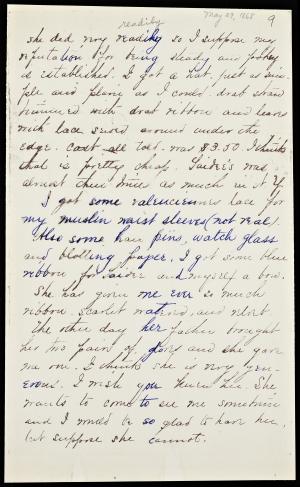 May 29, 1868
9
readily
she did very readily so I suppose my
reputation for being steady and
is established. I got a hat. just as sim-
ple and plain as I could. drab straw
trimmed with drab ribbon and
with lace sewed around under the
edge. cost all told. was $3.50. I think
that is pretty cheap. Saidie's was
almost three times as much
I got some valenciennes lace for
my muslin waist sleeves (not real).
Also some hair pins, watch glass
and blotting paper, I got some blue
ribbon for Saidie and myself a bow.
She has given me ever so much
ribbon. scarlet watered, and
The other day her father brought
her two pairs of and she gave
me one. I think she is very gen-
erous. I wish you knew She
wants to come to see me sometime
and I would be so glad to have her,
but suppose she cannot.